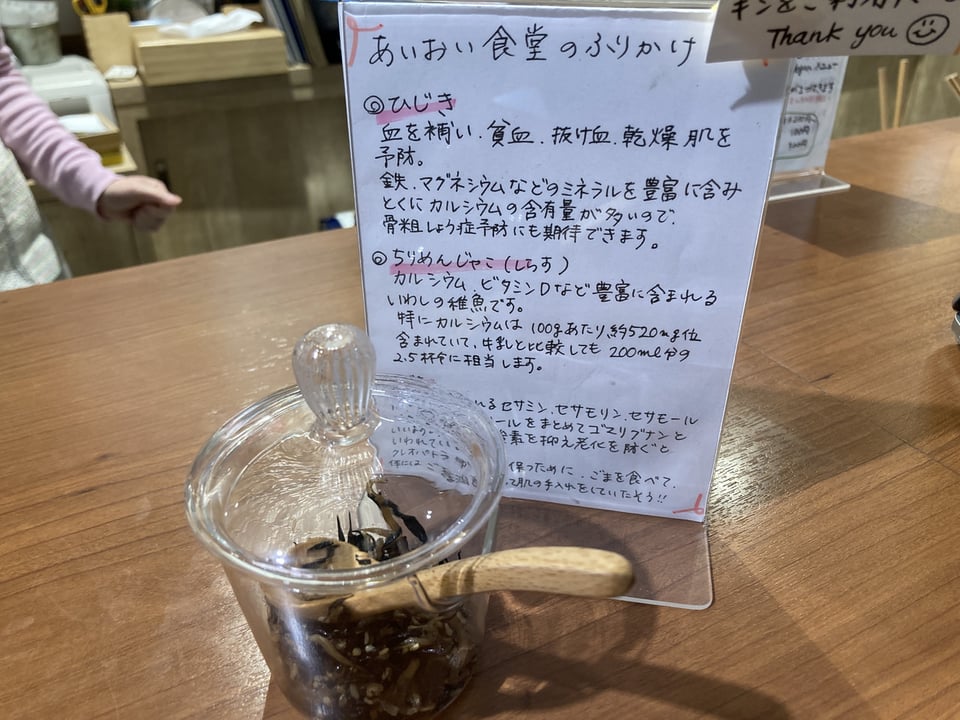 あいおい食堂のふりかけ
◎ひじき
血を補い、貧血、抜け毛、乾燥肌を
予防。
鉄、マグネシウムなどのミネラルを豊富に含み
とくにカルシウムの含有量が多いので、
骨粗しょう症予防にも期待できます。
◎ちりめんじゃこ(しらす)
カルシウム、ビタミンDなど豊富に含まれる
いわしの稚魚です。
特にカルシウムは100gあたり、約520mg位
含まれていて、牛乳と比較しても200ml分の
2.5杯分に相当します。
れるセサミン、セサモリン、セサモール
ールをまとめてゴマリグナンと
素を抑え老化を防ぐと
いわれてい
クレオパトラ
保つために、ごまを食べて、
て肌の手入れをしていたそう!!
Thank you